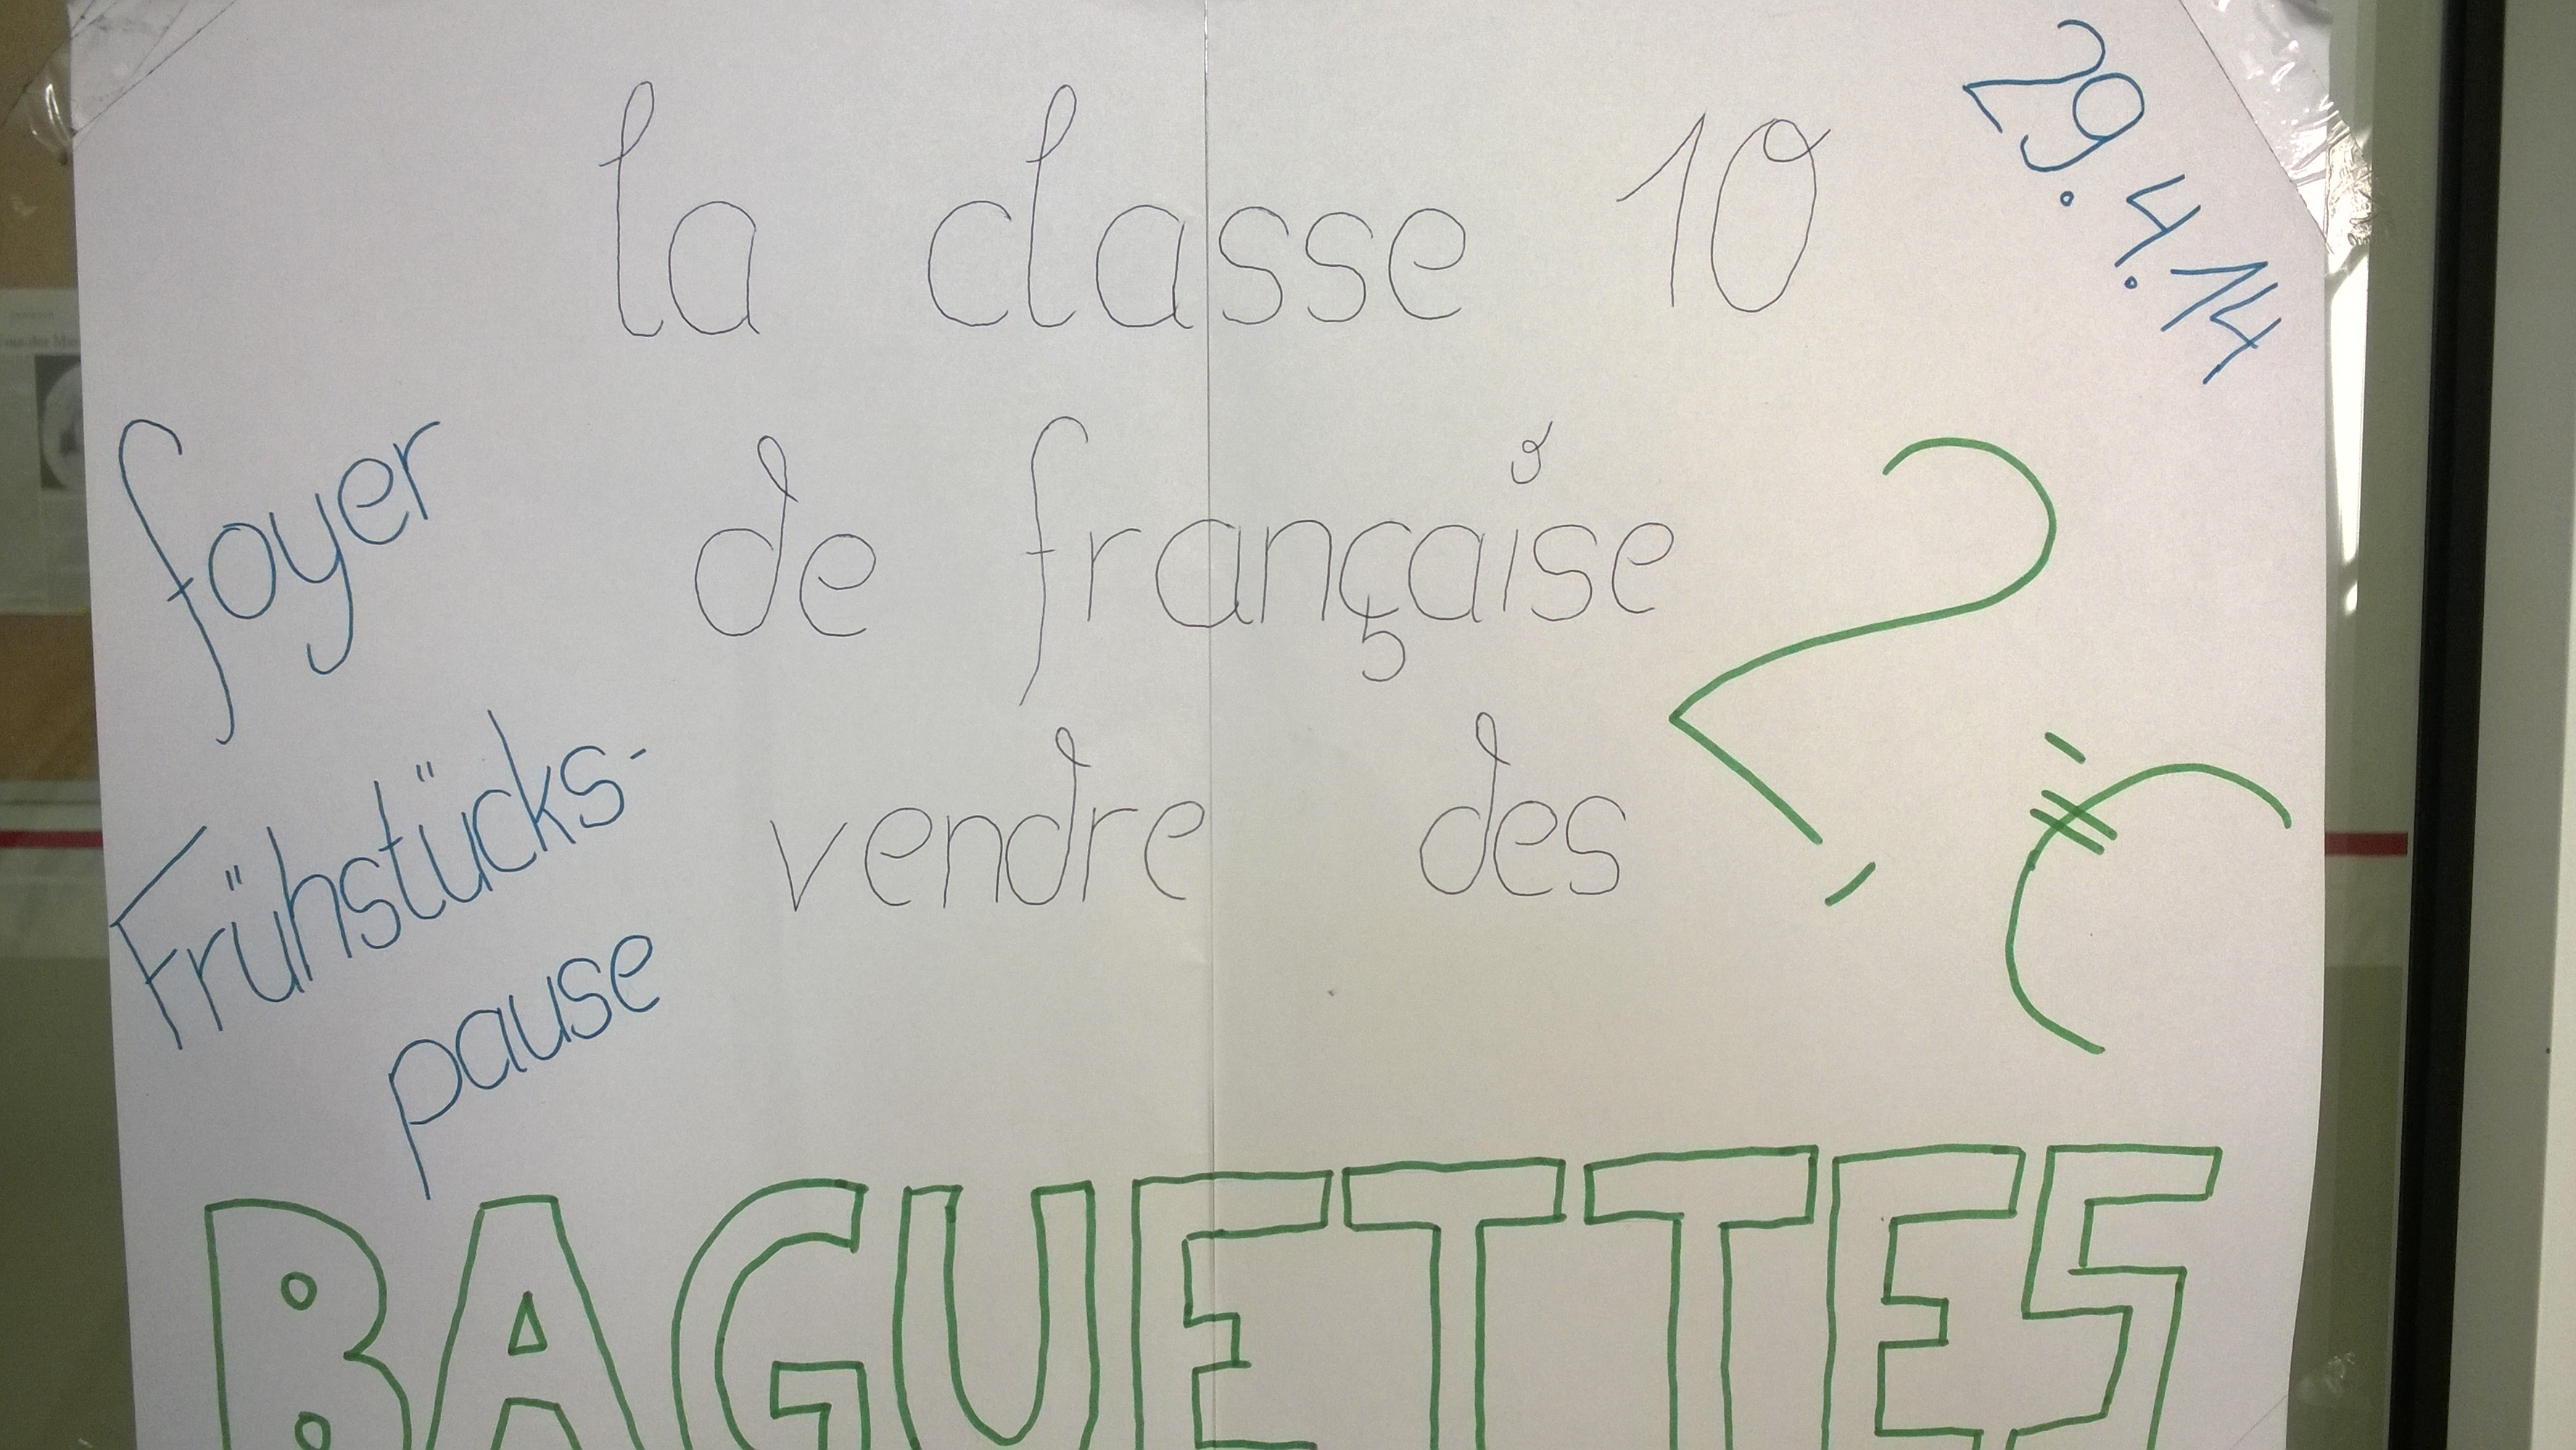 la classe 10
29.4.14
de française
foyer
vendre des
Frühstücks-
pause
2,- €
BAGUETTES